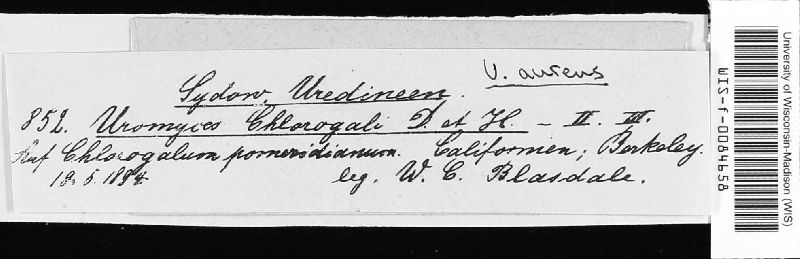 U. aureus
Sydow, Uredineen.
852. Uromyces Chlorogali D. et H. – II. III.
Auf Chlorogalum pomeridianum. Californien; Berkeley.
18. 5. 1894. leg. W. C. Blasdale.
University of Wisconsin-Madison (WIS)
WIS-f-0084658